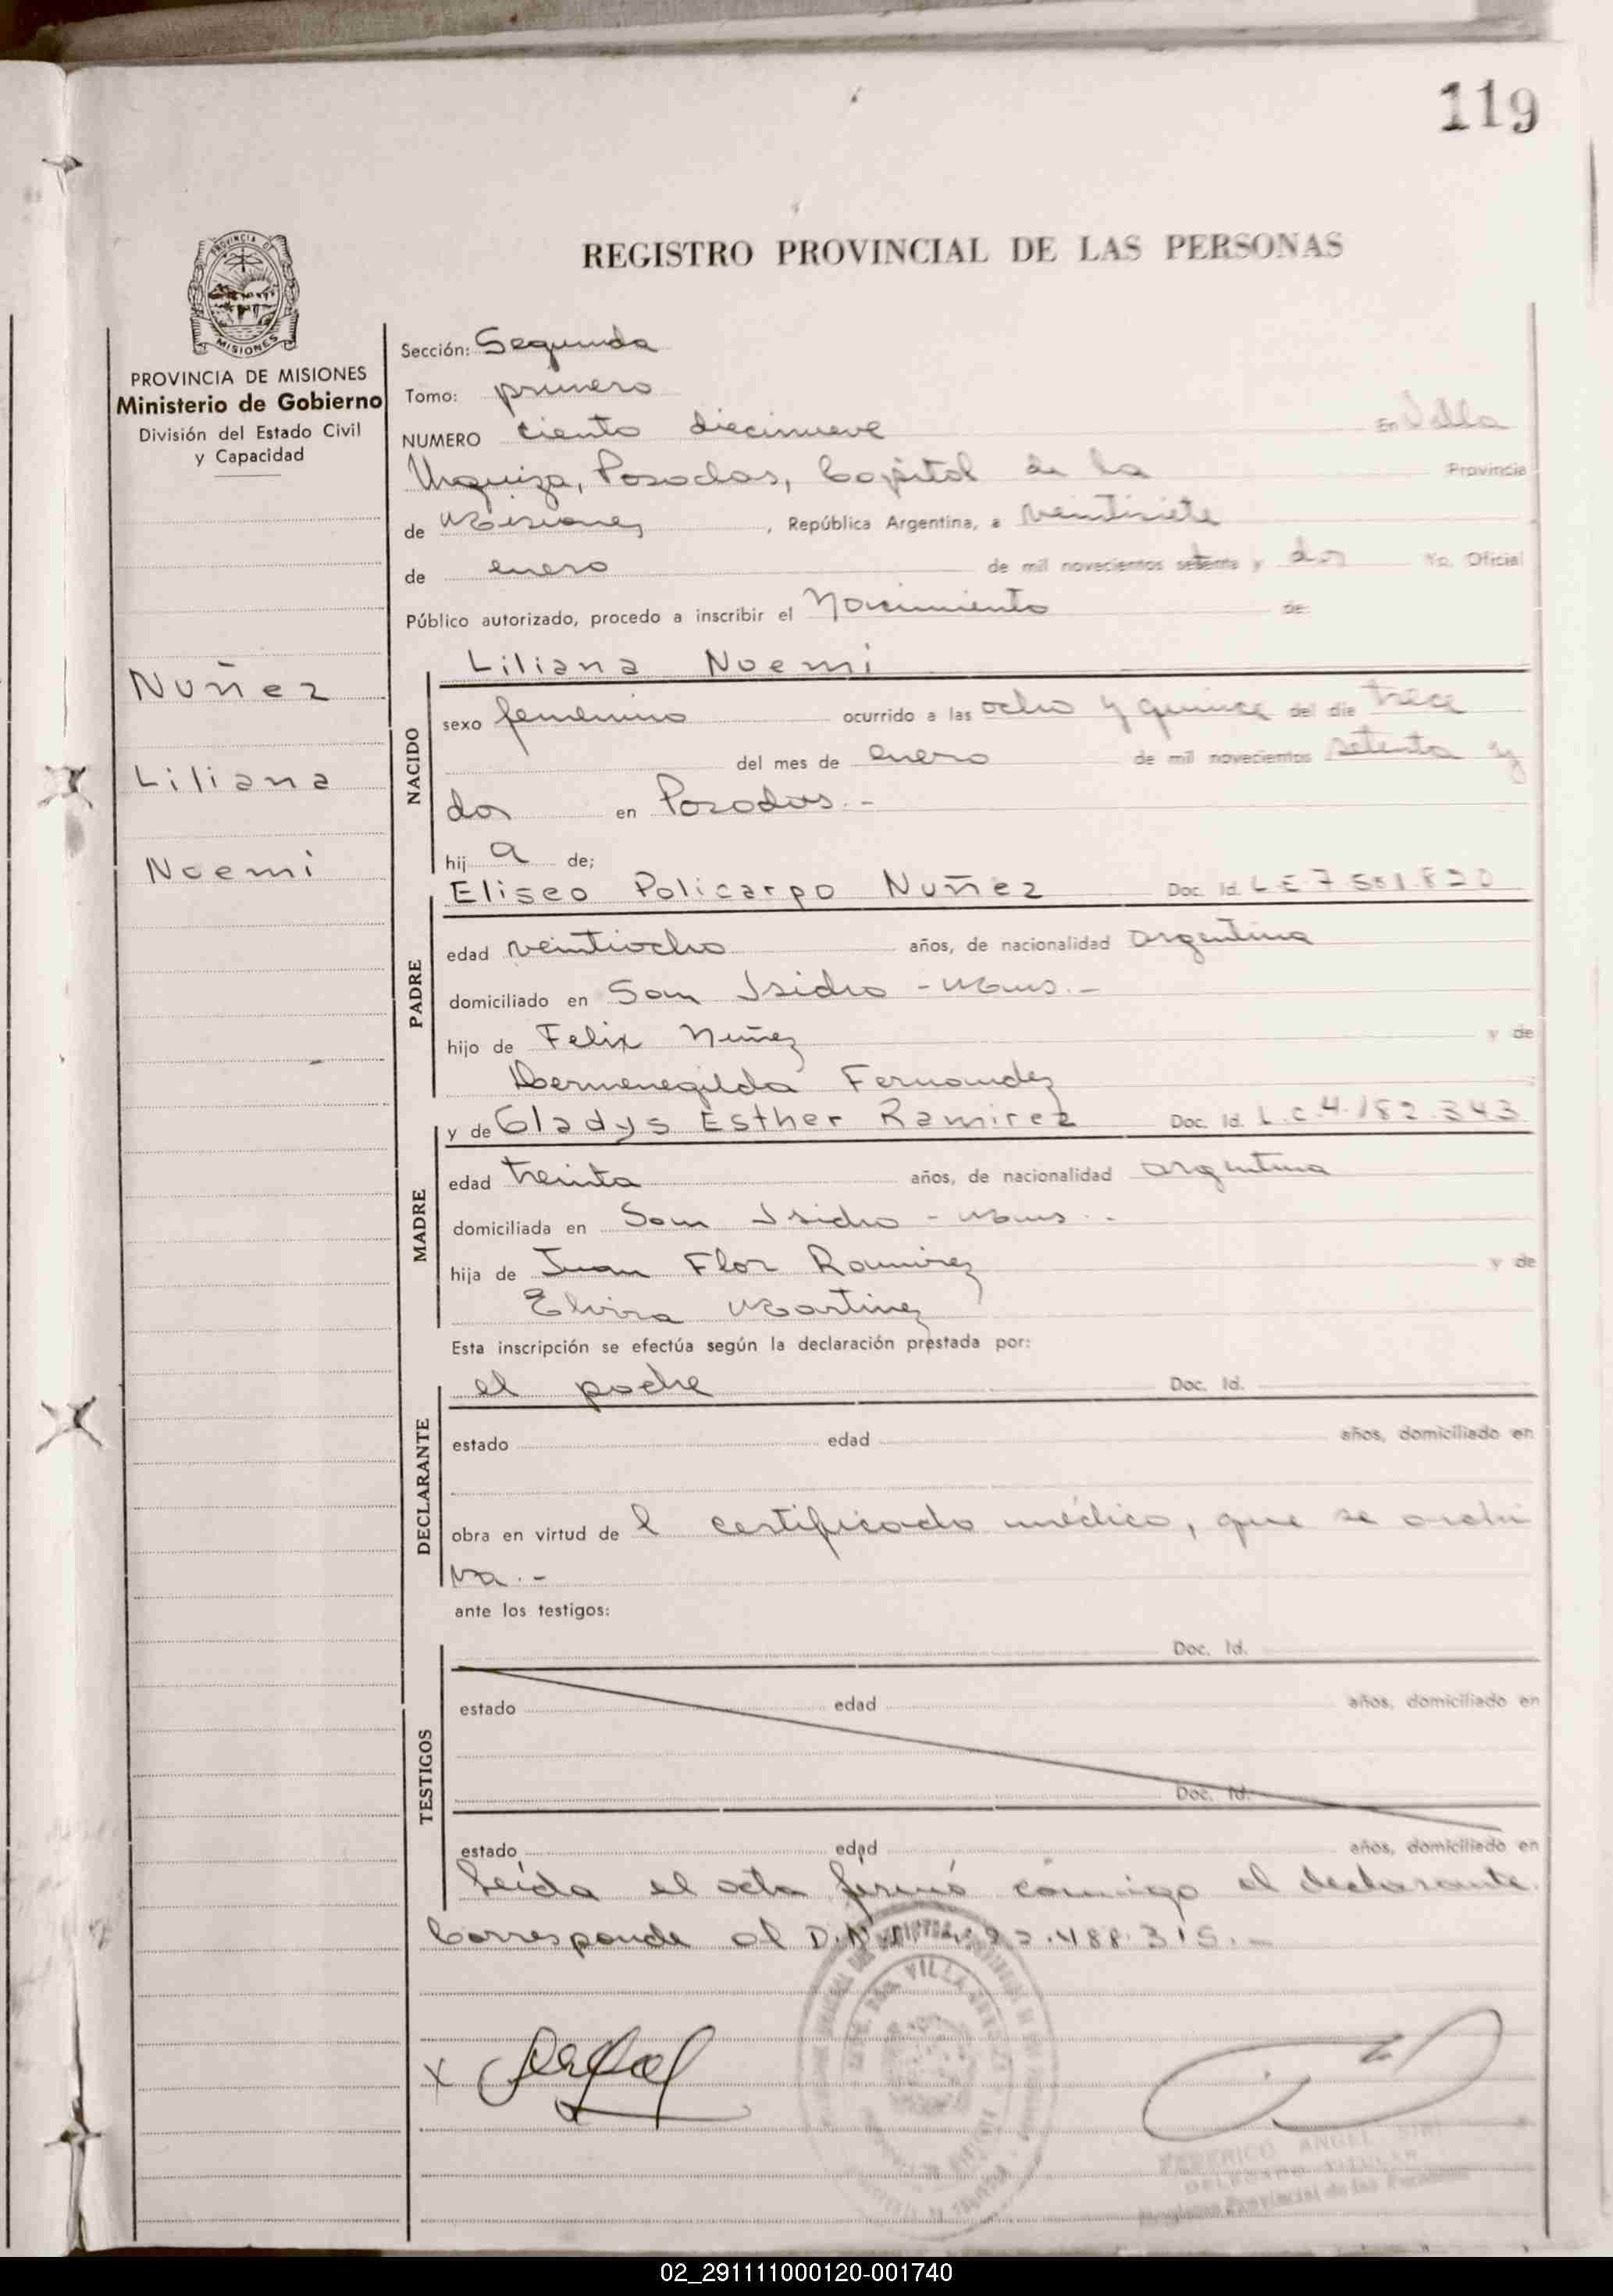 119
REGISTRO PROVINCIAL DE LAS PERSONAS
PROVINCIA DE MISIONES
Ministerio de Gobierno
División del Estado Civil
y Capacidad
Nuñez
Liliana
Noemi
Sección: Segunda
Tomo: primero
NUMERO ciento diecinueve En Villa
Urquiza, Posadas, Capital de la Provincia
de Misiones, República Argentina, a veintisiete
de enero de mil novecientos setenta y dos Yo, Oficial
Público autorizado, procedo a inscribir el Nacimiento de
Liliana Noemi
NACIDO
sexo femenino ocurrido a las ocho y quince del día trece
del mes de enero de mil novecientos setenta y
dos en Posadas.-
hij a de;
Eliseo Policarpo Nuñez Doc. Id. L E 7.501.820
PADRE
edad veintiocho años, de nacionalidad argentina
domiciliado en San Isidro - Mnes.-
hijo de Felix Nuñez y de
Hermenegilda Fernandez
y de Gladys Esther Ramirez Doc. Id. L.C 4.182.343
MADRE
edad treinta años, de nacionalidad argentina
domiciliada en San Isidro - Mnes.-
hija de Juan Flor Ramirez y de
Elvira Martinez
Esta inscripción se efectúa según la declaración prestada por:
el padre Doc. Id.
DECLARANTE
estado edad años, domiciliado en
obra en virtud de l certificado médico, que se archi
va.-
ante los testigos:
Doc. Id.
TESTIGOS
estado edad años, domiciliado en
Doc. Id.
estado edad años, domiciliado en
Leída el acta firmó conmigo el declarante.
Corresponde al D.N.I. 22.488.315.-
X
FEDERICO ANGEL
Registro Provincial de las Personas
02_291111000120-001740